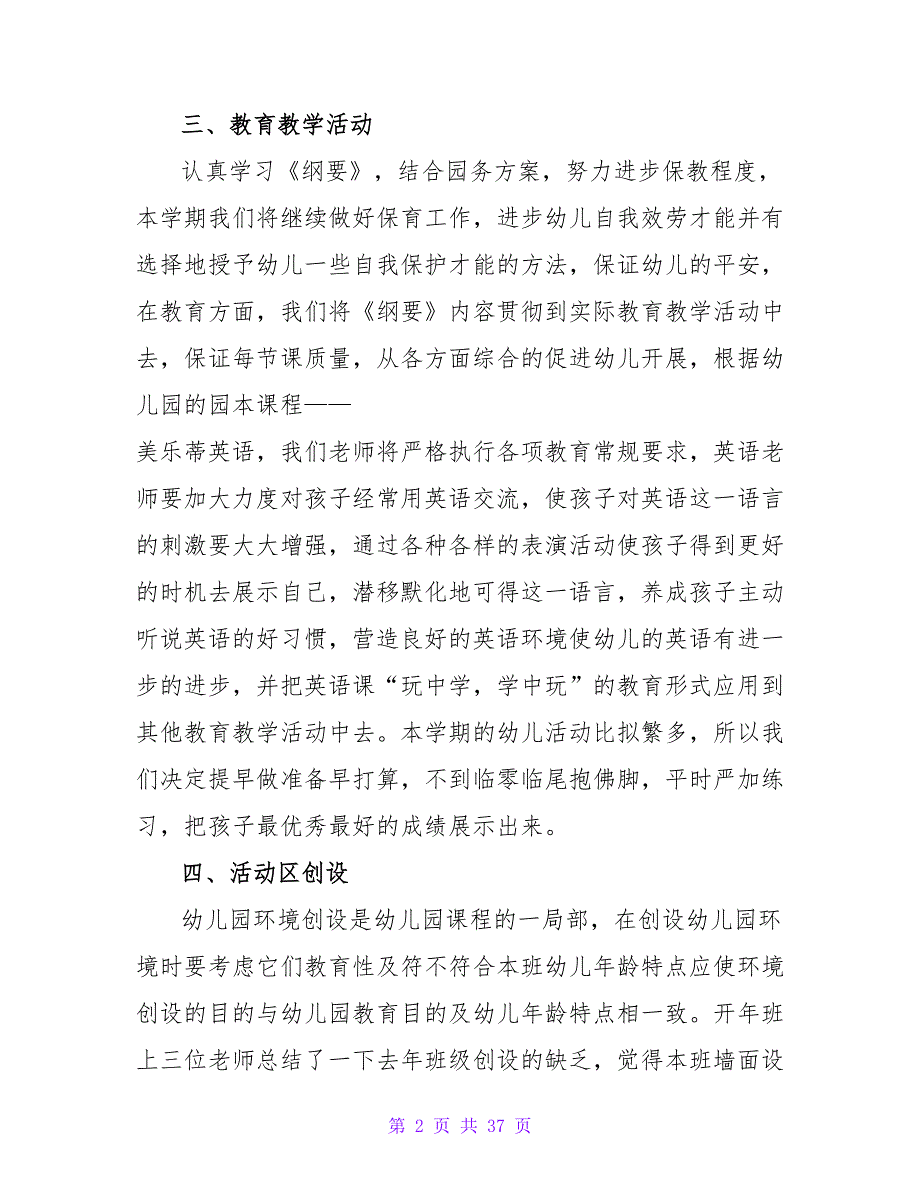 三、教育教学活动
认真学习《纲要》，结合园务方案，努力进步保教程度，
本学期我们将继续做好保育工作，进步幼儿自我效劳才能并有
选择地授予幼儿一些自我保护才能的方法，保证幼儿的平安，
在教育方面，我们将《纲要》内容贯彻到实际教育教学活动中
去，保证每节课质量，从各方面综合的促进幼儿开展，根据幼
儿园的园本课程——
美乐蒂英语，我们老师将严格执行各项教育常规要求，英语老
师要加大力度对孩子经常用英语交流，使孩子对英语这一语言
的刺激要大大增强，通过各种各样的表演活动使孩子得到更好
的时机去展示自己，潜移默化地可得这一语言，养成孩子主动
听说英语的好习惯，营造良好的英语环境使幼儿的英语有进一
步的进步，并把英语课“玩中学，学中玩”的教育形式应用到
其他教育教学活动中去。本学期的幼儿活动比拟繁多，所以我
们决定提早做准备早打算，不到临零临尾抱佛脚，平时严加练
习，把孩子最优秀最好的成绩展示出来。
四、活动区创设
幼儿园环境创设是幼儿园课程的一局部，在创设幼儿园环
境时要考虑它们教育性及符不符合本班幼儿年龄特点应使环境
创设的目的与幼儿园教育目的及幼儿年龄特点相一致。开年班
上三位老师总结了一下去年班级创设的缺乏，觉得本班墙面设
第 2 页 共 37 页